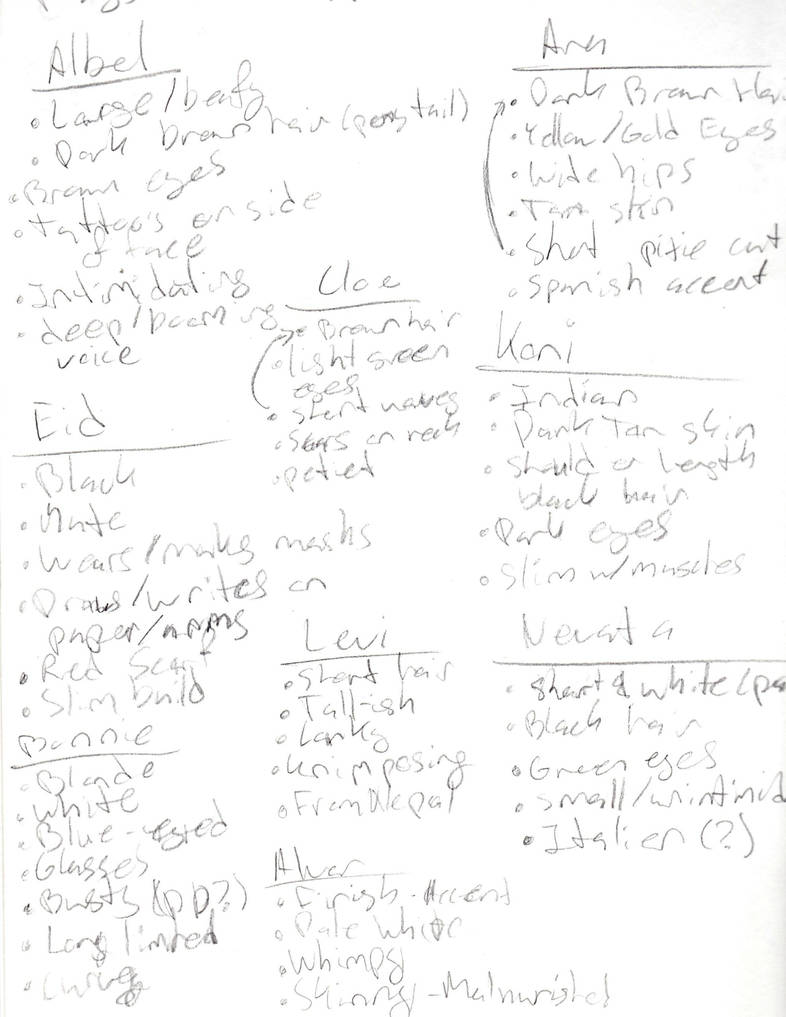 Albel
• Large/beafy
• Dark brown hair (pony tail)
• Brown eyes
• Tattoo's on side
of face
• Intimidating
• deep/booming
voice
Cloe
• Brown hair
• light green
eyes
• short waves
• Scars on neck
• petiet
Eid
• Black
• Mute
• Wears/makes masks
• Draws/writes on
paper/arms
• Red Scarf
• Slim build
Bonnie
• Blonde
• White
• Blue-eyed
• Glasses
• Busty (DD?)
• Long limbed
• Curvy
Levi
• Short hair
• Tall-ish
• Lanky
• Unimposing
• From Nepal
Alvar
• Finish-Accent
• Pale White
• Whimpy
• Skinny-Malnurished
• Dark Brown Hai
• Yellow/Gold Eyes
• Wide hips
• Tan skin
• Short pixie cut
• Spanish accent
Kani
• Indian
• Dark Tan skin
• Should er length
black hair
• Dark eyes
• Slim w/muscles
Nevata
• Short & white (pa
• Black hair
• Green eyes
• Small/unintimid
• Italien(?)